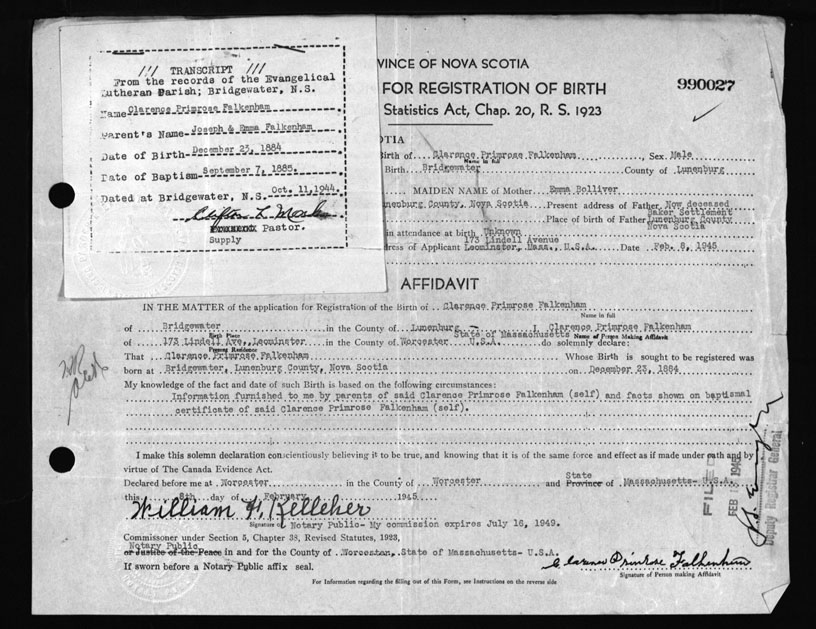 TRANSCRIPT
From the records of the Evangelical
Lutheran Parish; Bridgewater, N.S.
Name Clarence Primrose Falkenham
Parent's Name Joseph & Emma Falkenham
Date of Birth December 23, 1884
Date of Baptism September 7, 1885.
Dated at Bridgewater, N.S. Oct. 11, 1944.
Clifton L.
Pastor.
Supply
VINCE OF NOVA SCOTIA
FOR REGISTRATION OF BIRTH
990027
Statistics Act, Chap. 20, R. S. 1923
OTIA
Birth of Clarence Primrose Falkenham, Sex Male
Name in full
Birth Bridgewater County of Lunenburg
MAIDEN NAME of Mother Emma Bolliver
nenburg County, Nova Scotia Present address of Father Now deceased
Baker Settlement
Place of birth of Father Lunenburg County
Nova Scotia
in attendance at birth Unknown
173 Lindell Avenue
dress of Applicant Leominster, Mass., U.S.A. Date Feb. 8, 1945
AFFIDAVIT
IN THE MATTER of the application for Registration of the Birth of Clarence Primrose Falkenham
Name in full
of Bridgewater in the County of Lunenburg I, Clarence Primrose Falkenham
Birth Place
State of Massachusetts
Name of Person Making Affidavit
of 173 Lindell Ave., Leominster in the County of Worcester U.S.A. do solemnly declare:
Present Residence
That Clarence Primrose Falkenham Whose Birth is sought to be registered was
born at Bridgewater, Lunenburg County, Nova Scotia on December 23, 1884
My knowledge of the fact and date of such Birth is based on the following circumstances:
Information furnished to me by parents of said Clarence Primrose Falkenham (self) and facts shown on baptismal
certificate of said Clarence Primrose Falkenham (self).
I make this solemn declaration conscientiously believing it to be true, and knowing that it is of the same force and effect as if made under oath and by
virtue of The Canada Evidence Act.
State
Declared before me at Worcester in the County of Worcester and Province of Massachusetts- U.S.A.
this 8th day of February 1945
William H. Kelleher
Signature of Notary Public- My commission expires July 16, 1949.
Commissioner under Section 5, Chapter 38, Revised Statutes, 1923,
Notary Public
or Justice of the Peace in and for the County of Worcester, State of Massachusetts- U.S.A.
If sworn before a Notary Public affix seal.
Clarence Primrose Falkenham
Signature of Person making Affidavit
For Information regarding the filling out of this Form, see Instructions on the reverse side
FILED
FEB 1945
Deputy Registrar General